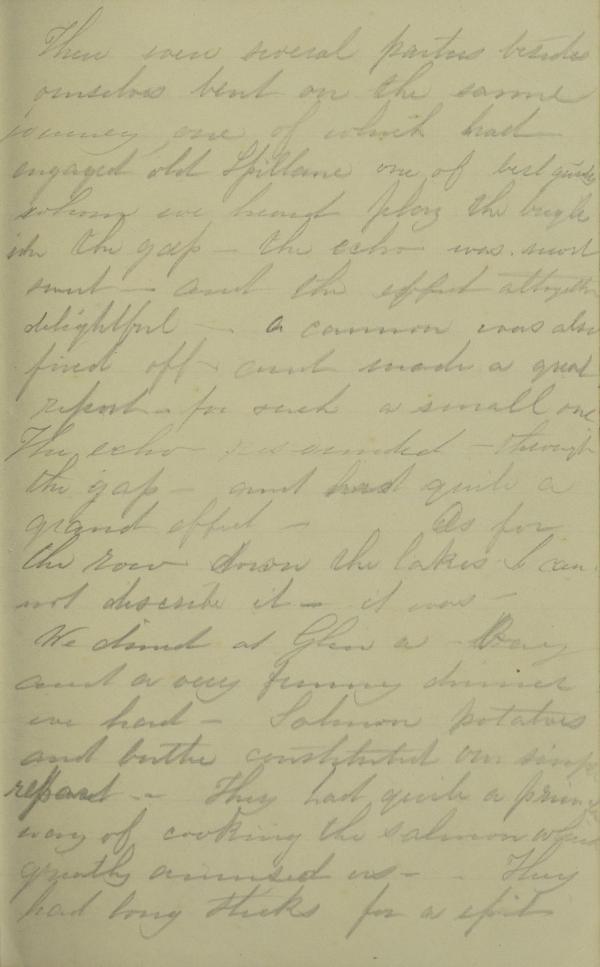 There were several parties besides
ourselves bent on the same
journey, one of which had
engaged old Spillane one of best guides
whom we heard play the bugle
in the gap – the echo was most
sweet – and the effect altogether
delightful – a cannon was also
fired off and made a great
report – for such a small one
The echo resounded – through
the gap – and had quite a
grand effect – As for
the row down the lakes I can
not describe it – it was –
We dined at Glen a Bay
and a very funny dinner
we had – Salmon potatoes
and butter constituted our simple
repast – They had quite a
way of cooking the salmon which
greatly amused us – They
had long sticks for a spit